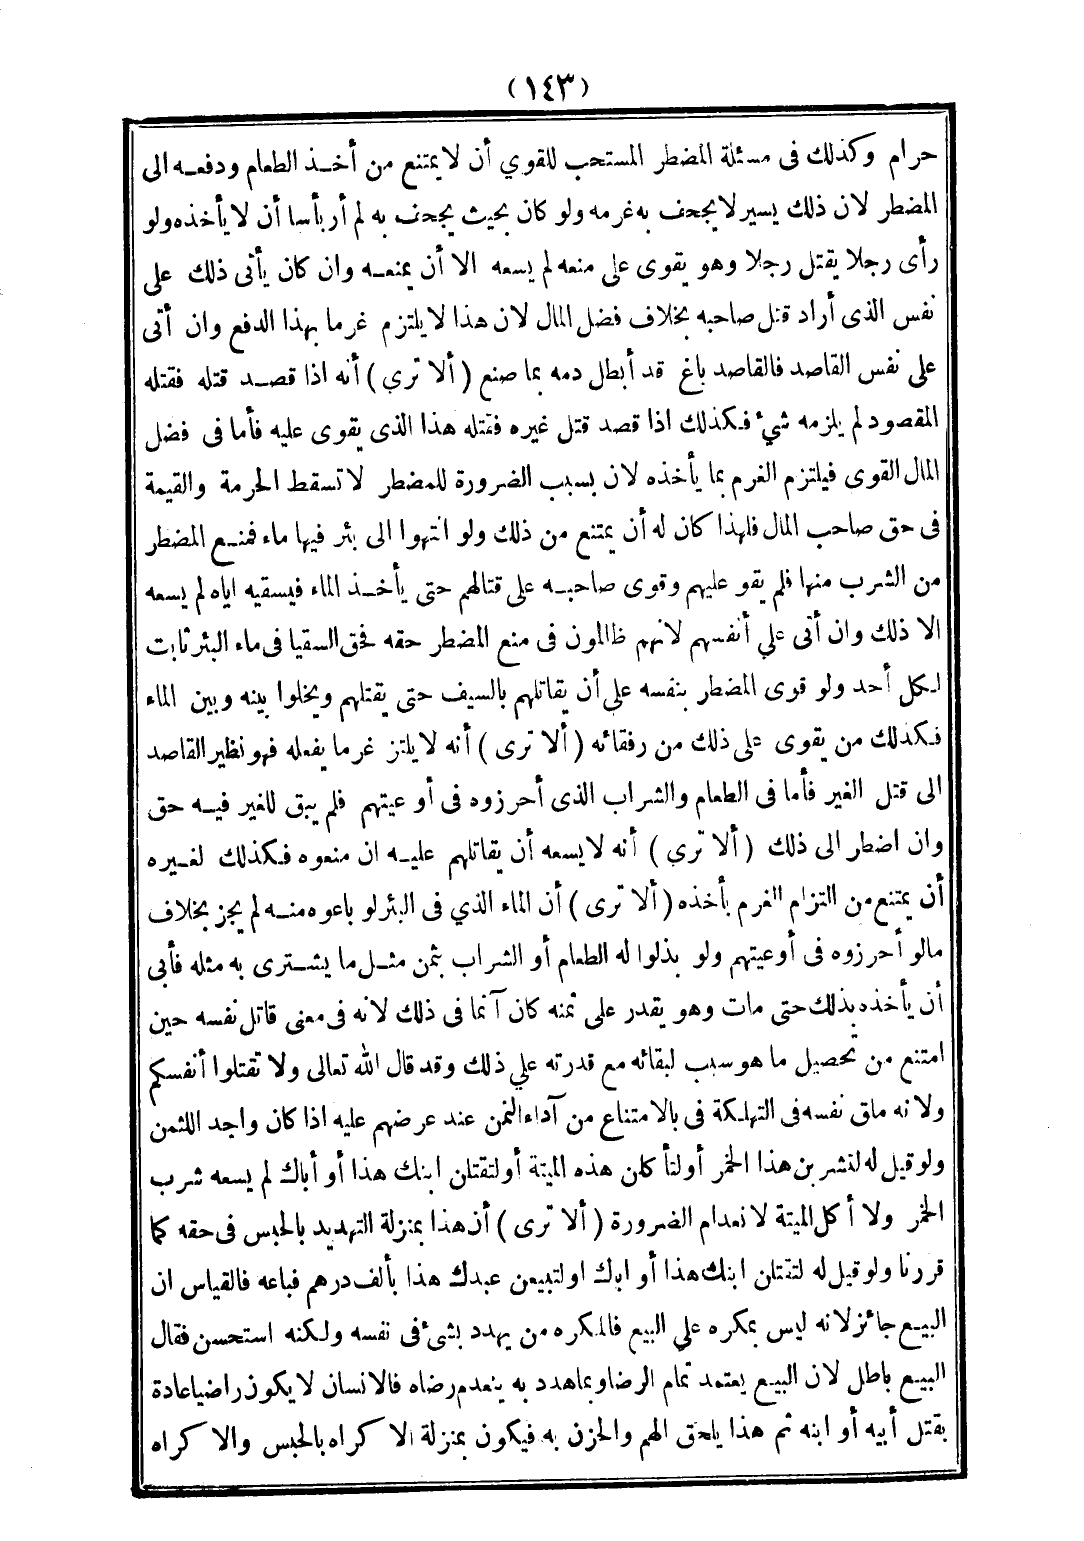 (١٤٣)
حرام وكذلك فى مسئلة المضطر المستحب للقوي أن لا يمتنع من أخذ الطعام ودفعه الى
المضطر لان ذلك يسير لا يجحف به غرمه ولو كان بحيث يجحف به لم أر بأسا أن لا يأخذه ولو
رأى رجلا يقتل رجلا وهو يقوى على منعه لم يسعه الا أن يمنعه وان كان يأتى ذلك على
نفس الذى أراد قتل صاحبه بخلاف فضل المال لان هذا لا يلتزم غرما بهذا الدفع وان أتى
على نفس القاصد فالقاصد باغ قد أبطل دمه بما صنع (ألا تري) أنه اذا قصد قتله فقتله
المقصود لم يلزمه شئ فكذلك اذا قصد قتل غيره فقتله هذا الذى يقوى عليه فأما فى فضل
المال القوى فيلتزم الغرم بما يأخذه لان بسبب الضرورة للمضطر لا تسقط الحرمة والقيمة
فى حق صاحب المال فلهذا كان له أن يمتنع من ذلك ولو انتهوا الى بئر فيها ماء فمنع المضطر
من الشرب منها فلم يقو عليهم وقوى صاحبه على قتالهم حتى يأخذ الماء فيسقيه اياه لم يسعه
الا ذلك وان أتى علي أنفسهم لانهم ظالمون فى منع المضطر حقه فحق السقيا فى ماء البئر ثابت
لكل أحد ولو قوى المضطر بنفسه على أن يقاتلهم بالسيف حتى يقتلهم ويخلوا بينه وبين الماء
فكذلك من يقوى على ذلك من رفقائه (ألا ترى) أنه لا يلتز غرما يفعله فهو نظير القاصد
الى قتل الغير فأما فى الطعام والشراب الذى أحرزوه فى أوعيتهم فلم يبق للغير فيه حق
وان اضطر الى ذلك (ألا تري) أنه لا يسعه أن يقاتلهم عليه ان منعوه فكذلك لغيره
أن يمتنع من التزام الغرم بأخذه (ألا ترى) أن الماء الذي فى البئر لو باعوه منه لم يجز بخلاف
مالو أحرزوه فى أوعيتهم ولو بذلوا له الطعام أو الشراب بثمن مثل ما يشترى به مثله فأبى
أن يأخذه بذلك حتى مات وهو يقدر على ثمنه كان آثما فى ذلك لانه فى معنى قاتل نفسه حين
امتنع من تحصيل ما هو سبب لبقائه مع قدرته علي ذلك وقد قال الله تعالى ولا تقتلوا أنفسكم
ولانه ماق نفسه فى التهلكة فى بالامتناع من آداء الثمن عند عرضهم عليه اذا كان واجد اللثمن
ولو قيل له لتشربن هذا الخمر أو لتأكلن هذه الميتة أو لتقتلن ابنك هذا أو أباك لم يسعه شرب
الخمر ولا أكل الميتة لانعدام الضرورة (ألا ترى) أن هذا بمنزلة التهديد بالحبس فى حقه كما
قررنا ولو قيل له لتقتلن ابنك هذا أو ابك او لتبيعن عبدك هذا بألف درهم فباعه فالقياس ان
البيع جائز لانه ليس بمكره علي البيع فالمكره من يهدد بشئ فى نفسه ولكنه استحسن فقال
البيع باطل لان البيع يعتمد تمام الرضا وبما هدد به ينعدم رضاه فالانسان لا يكون راضيا عادة
بقتل أبيه أو ابنه ثم هذا يلحق الهم والحزن به فيكون بمنزلة الاكراه بالحبس والاكراه